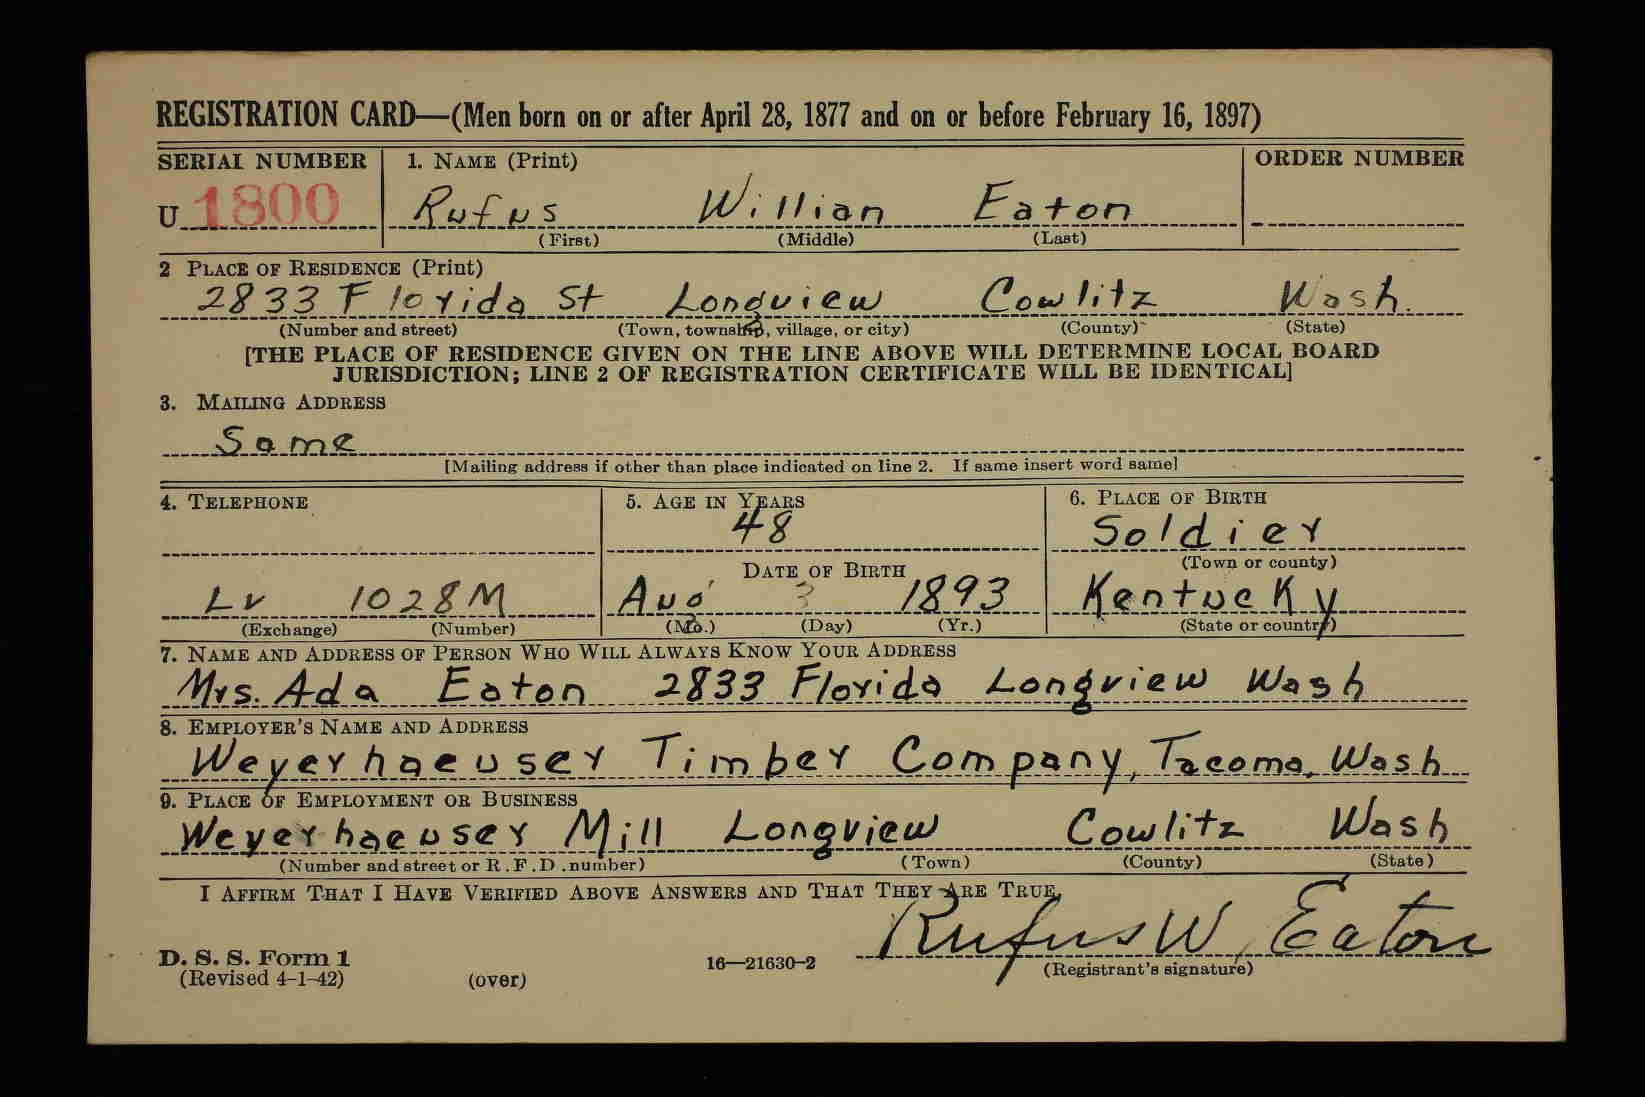 REGISTRATION CARD—(Men born on or after April 28, 1877 and on or before February 16, 1897)
SERIAL NUMBER 1. NAME (Print) ORDER NUMBER
U 1800 Rufus Willian Eaton
(First) (Middle) (Last)
2 PLACE OF RESIDENCE (Print)
2833 Florida St Longview Cowlitz Wash.
(Number and street) (Town, township, village, or city) (County) (State)
[THE PLACE OF RESIDENCE GIVEN ON THE LINE ABOVE WILL DETERMINE LOCAL BOARD
JURISDICTION; LINE 2 OF REGISTRATION CERTIFICATE WILL BE IDENTICAL]
3. MAILING ADDRESS
Same
[Mailing address if other than place indicated on line 2. If same insert word same]
4. TELEPHONE 5. AGE IN YEARS 6. PLACE OF BIRTH
48 Soldier
DATE OF BIRTH (Town or county)
Lv 1028M Aug 3 1893 Kentucky
(Exchange) (Number) (Mo.) (Day) (Yr.) (State or country)
7. NAME AND ADDRESS OF PERSON WHO WILL ALWAYS KNOW YOUR ADDRESS
Mrs. Ada Eaton 2833 Florida Longview Wash
8. EMPLOYER'S NAME AND ADDRESS
Weyerhaeuser Timber Company, Tacoma, Wash
9. PLACE OF EMPLOYMENT OR BUSINESS
Weyerhaeuser Mill Longview Cowlitz Wash
(Number and street or R. F. D. number) (Town) (County) (State)
I AFFIRM THAT I HAVE VERIFIED ABOVE ANSWERS AND THAT THEY ARE TRUE.
Rufus W Eaton
D. S. S. Form 1 16—21630-2 (Registrant's signature)
(Revised 4-1-42) (over)